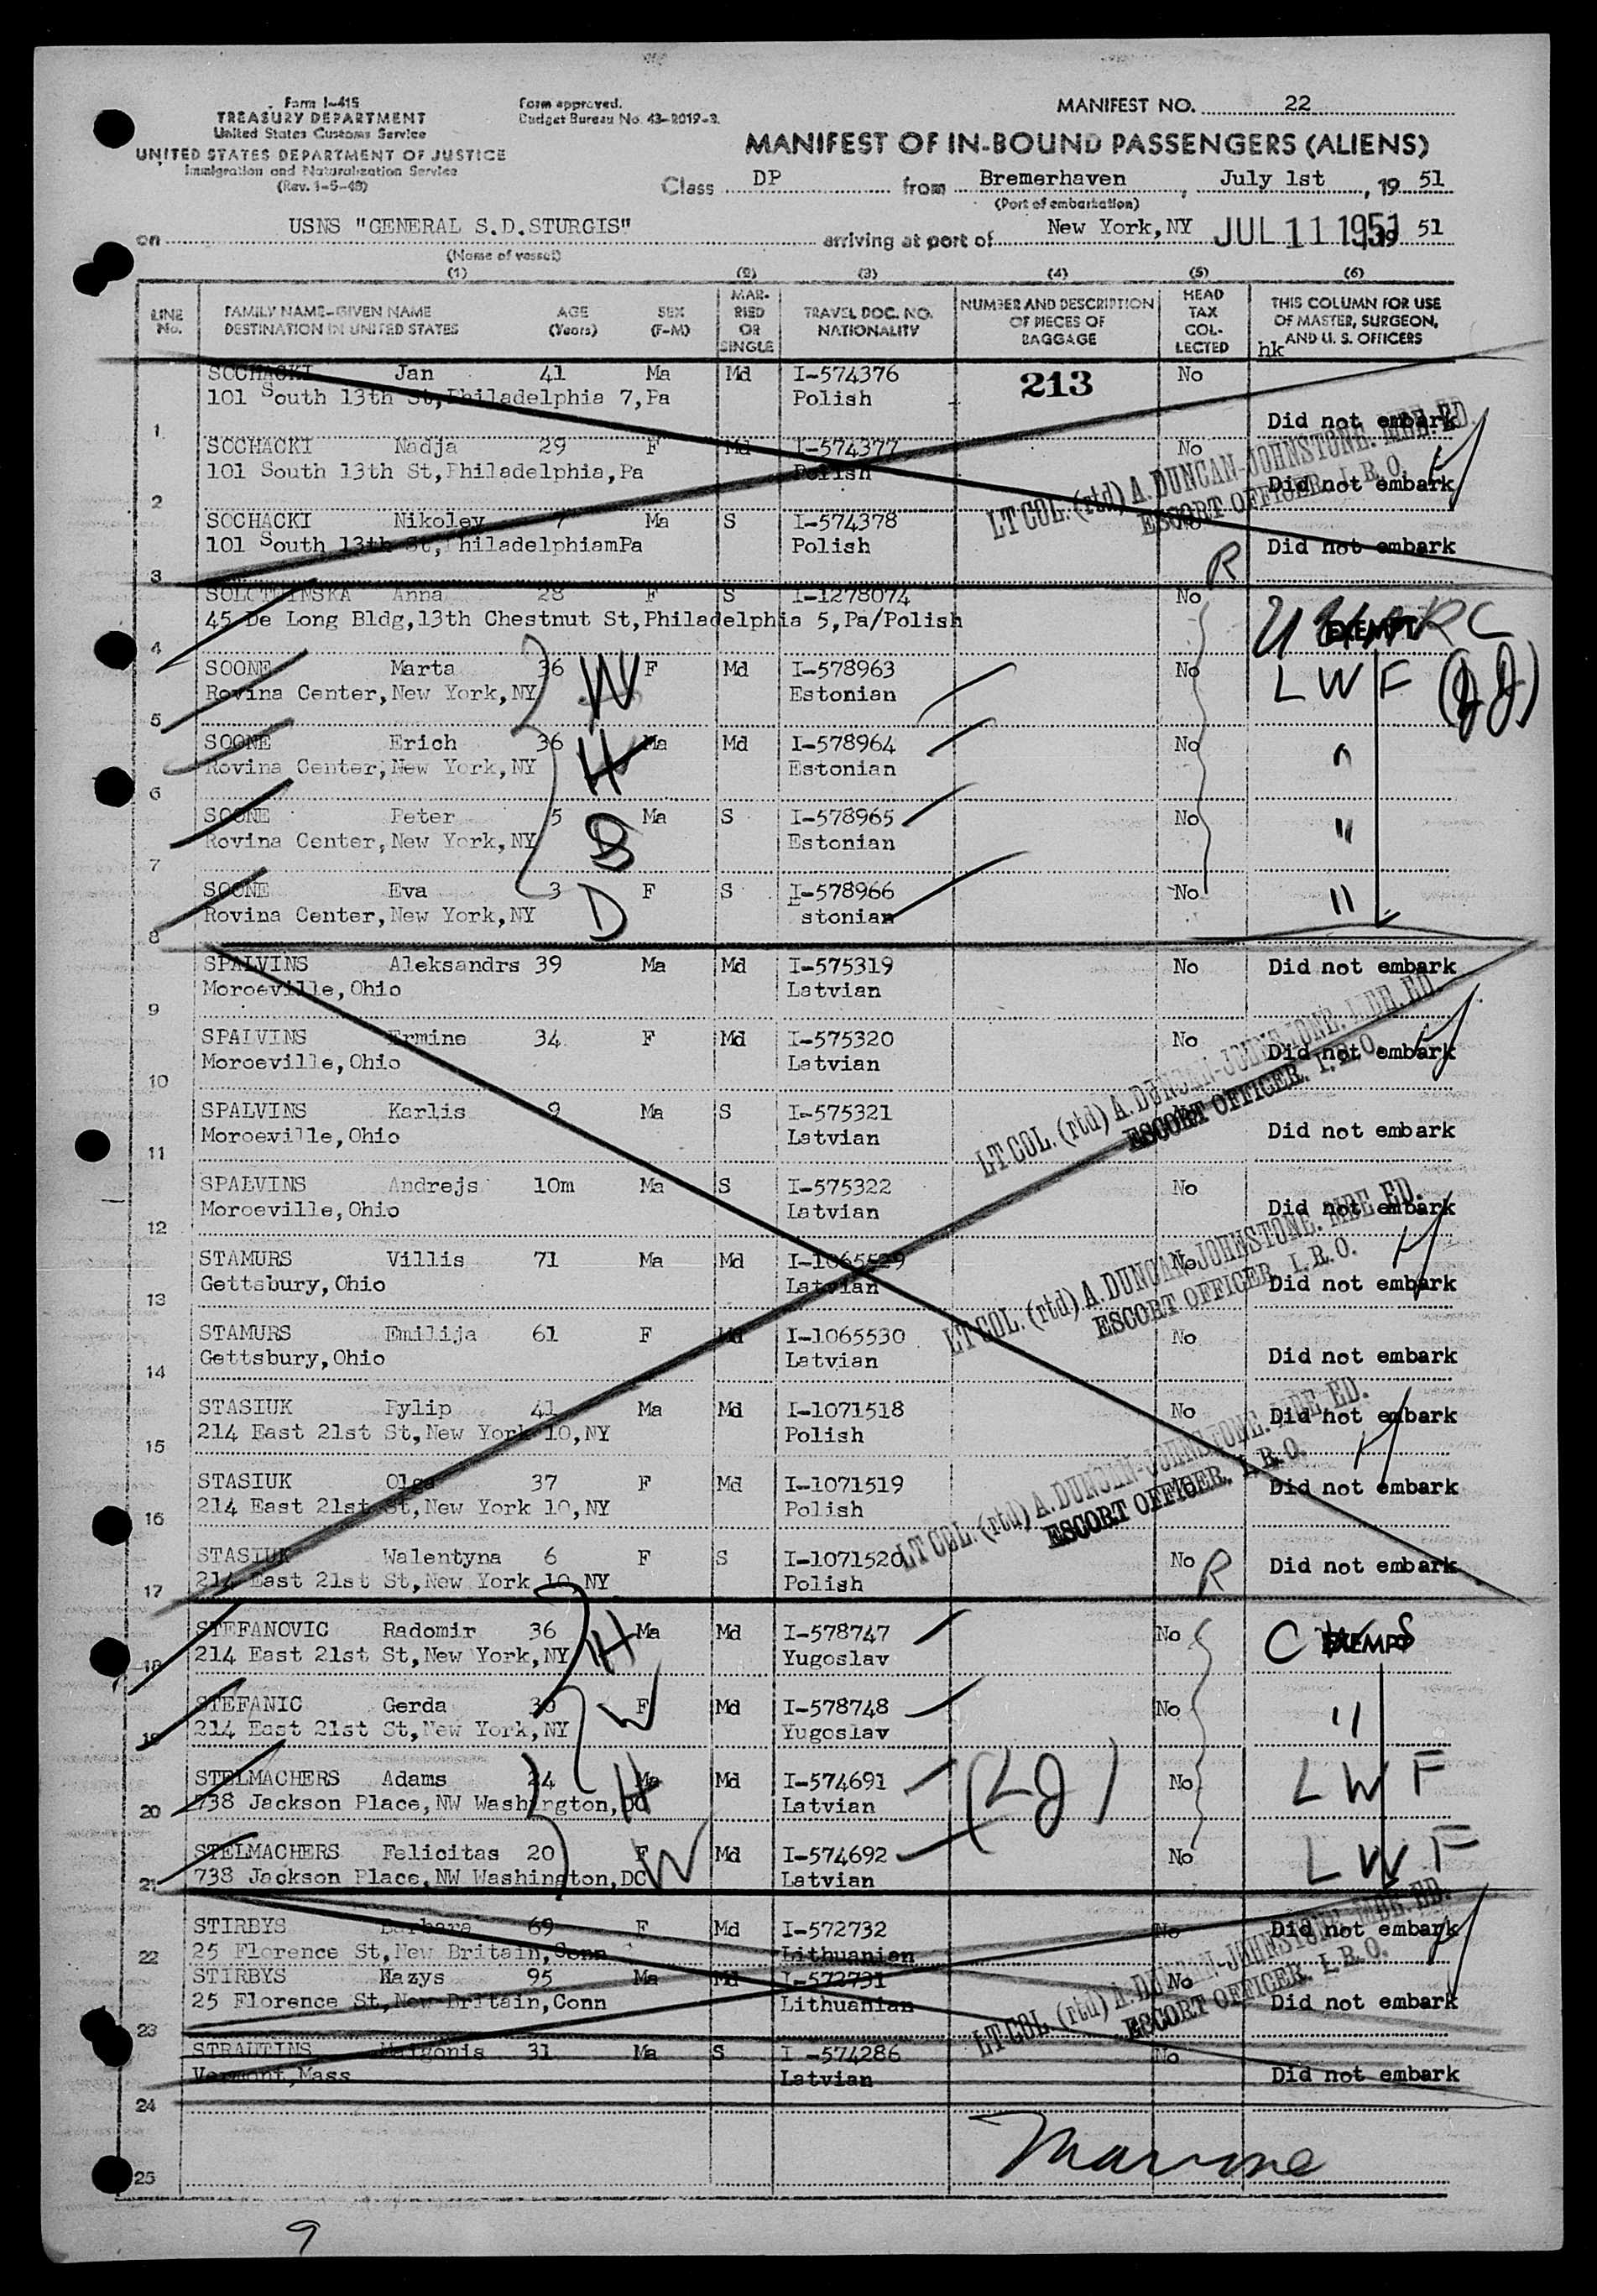 Form I-415
TREASURY DEPARTMENT
United States Customs Service
UNITED STATES DEPARTMENT OF JUSTICE
Immigration and Naturalization Service
(Rev. 1-5-48)
Form approved.
Budget Bureau No. 43-R019-3.
MANIFEST NO. 22
MANIFEST OF IN-BOUND PASSENGERS (ALIENS)
Class DP from Bremerhaven, July 1st, 19 51
(Port of embarkation)
on USNS "GENERAL S.D.STURGIS" arriving at port of New York,NY JUL 11 1951 19 51
(Name of vessel)
(1) (2) (3) (4) (5) (6)
LINE No.
FAMILY NAME-GIVEN NAME
DESTINATION IN UNITED STATES
AGE (Years)
SEX (F-M)
MAR-RIED OR SINGLE
TRAVEL DOC. NO. NATIONALITY
NUMBER AND DESCRIPTION OF PIECES OF BAGGAGE
HEAD TAX COL-LECTED
THIS COLUMN FOR USE OF MASTER, SURGEON, AND U. S. OFFICERS
hk
SOCHACKI Jan 41 Ma Md I-574376 213 No
101 South 13th St,Philadelphia 7,Pa Polish
1 Did not embark
SOCHACKI Nadja 29 F Md I-574377 No
101 South 13th St,Philadelphia,Pa Polish
2 Did not embark
LT COL. (rtd) A. DUNCAN-JOHNSTONE. MBE. ED.
ESCORT OFFICER. I. R. O.
SOCHACKI Nikoley 7 Ma S I-574378
101 South 13th St,PhiladelphiamPa Polish Did not embark
3 R
Anna 28 F S I-1278074 No
45 De Long Bldg,13th Chestnut St,Philadelphia 5,Pa/Polish EXEMPT
4
SOONE Marta 36 W F Md I-578963 No L W F
Rovina Center,New York,NY Estonian
5
SOONE Erich 36 H Ma Md I-578964 No "
Rovina Center,New York,NY Estonian
6
SOONE Peter 5 Ma S I-578965 No "
Rovina Center,New York,NY Estonian
7
SOONE Eva 3 D F S I-578966 No "
Rovina Center,New York,NY stonian
8
SPALVINS Aleksandrs 39 Ma Md I-575319 No Did not embark
Moroeville,Ohio Latvian
9
SPALVINS Ermine 34 F Md I-575320 No Did not embark
Moroeville,Ohio Latvian
10
SPALVINS Karlis 9 Ma S I-575321
Moroeville,Ohio Latvian Did not embark
11
LT COL. (rtd) A. DUNCAN-JOHNSTONE. MBE. ED.
ESCORT OFFICER. I. R. O.
SPALVINS Andrejs 10m Ma S I-575322 No
Moroeville,Ohio Latvian Did not embark
12
STAMURS Villis 71 Ma Md I-1065529 No
Gettsbury,Ohio Latvian Did not embark
13
LT COL. (rtd) A. DUNCAN-JOHNSTONE. MBE ED.
ESCORT OFFICER. I. R. O.
STAMURS Emilija 61 F Md I-1065530 No
Gettsbury,Ohio Latvian Did not embark
14
STASIUK Pylip 41 Ma Md I-1071518 No Did not embark
214 East 21st St,New York 10,NY Polish
15
STASIUK Olga 37 F Md I-1071519 No Did not embark
214 East 21st St,New York 10,NY Polish
16
LT COL. (rtd) A. DUNCAN-JOHNSTONE. MBE ED.
ESCORT OFFICER. I. R. O.
STASIUK Walentyna 6 F S I-1071520 No R Did not embark
214 East 21st St,New York 10,NY Polish
17
STEFANOVIC Radomir 36 H Ma Md I-578747 No EXEMPT
214 East 21st St,New York,NY Yugoslav
18
STEFANIC Gerda 30 W F Md I-578748 No "
214 East 21st St,New York,NY Yugoslav
19
STELMACHERS Adams 24 H Ma Md I-574691 No L W F
738 Jackson Place,NW Washington,DC Latvian
20
STELMACHERS Felicitas 20 W F Md I-574692 No L W F
738 Jackson Place,NW Washington,DC Latvian
21
STIRBYS Barbara 69 F Md I-572732 No Did not embark
25 Florence St,New Britain,Conn Lithuanian
22
STIRBYS Kazys 95 Ma Md I-572731 No
25 Florence St,New Britain,Conn Lithuanian Did not embark
23
LT COL. (rtd) A. DUNCAN-JOHNSTONE. MBE. ED.
ESCORT OFFICER. I. R. O.
STRAUTINS Maigonis 31 Ma S I -574286 No
Vermont,Mass Latvian Did not embark
24
25
9